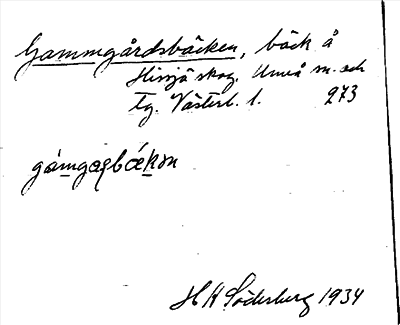 Gammgårdsbäcken, bäck å
Hissjö skog. Umeå sn. och
tg. Västerb. l. 273
H H Söderberg 1934